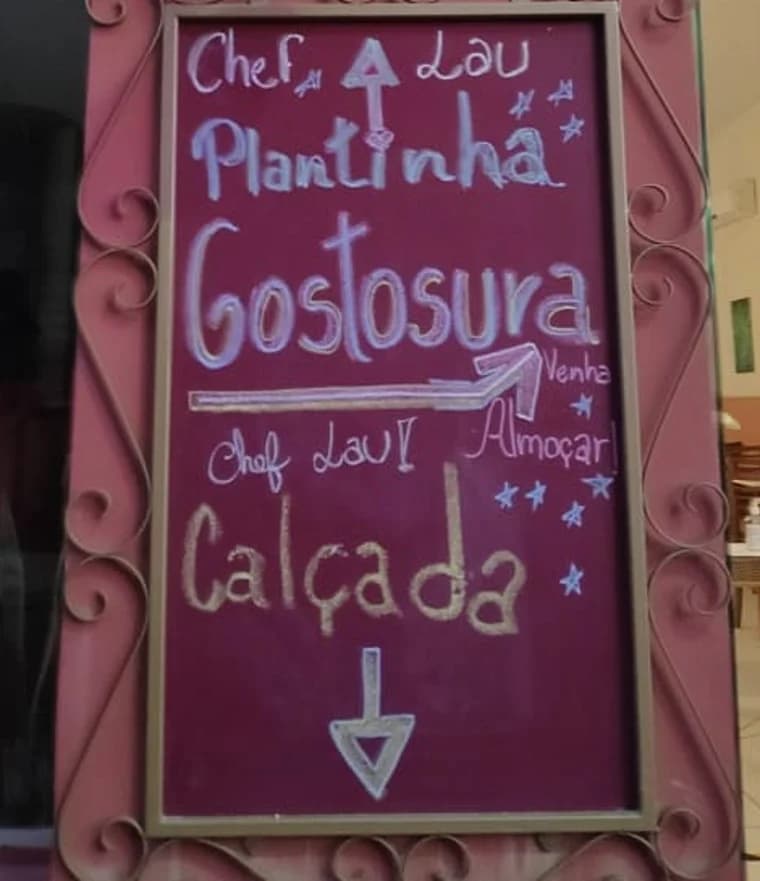 Chef Lau
Plantinha
Gostosura
Venha
Almoçar!
Chef Lau!
Calçada